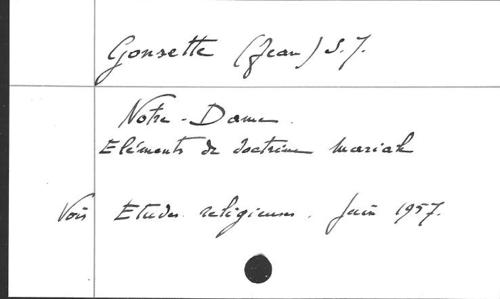 Gonsette (Jean) S.J.
Notre-Dame.
Eléments de doctrine mariale
Voir Etudes religieuses. Juin 1957.